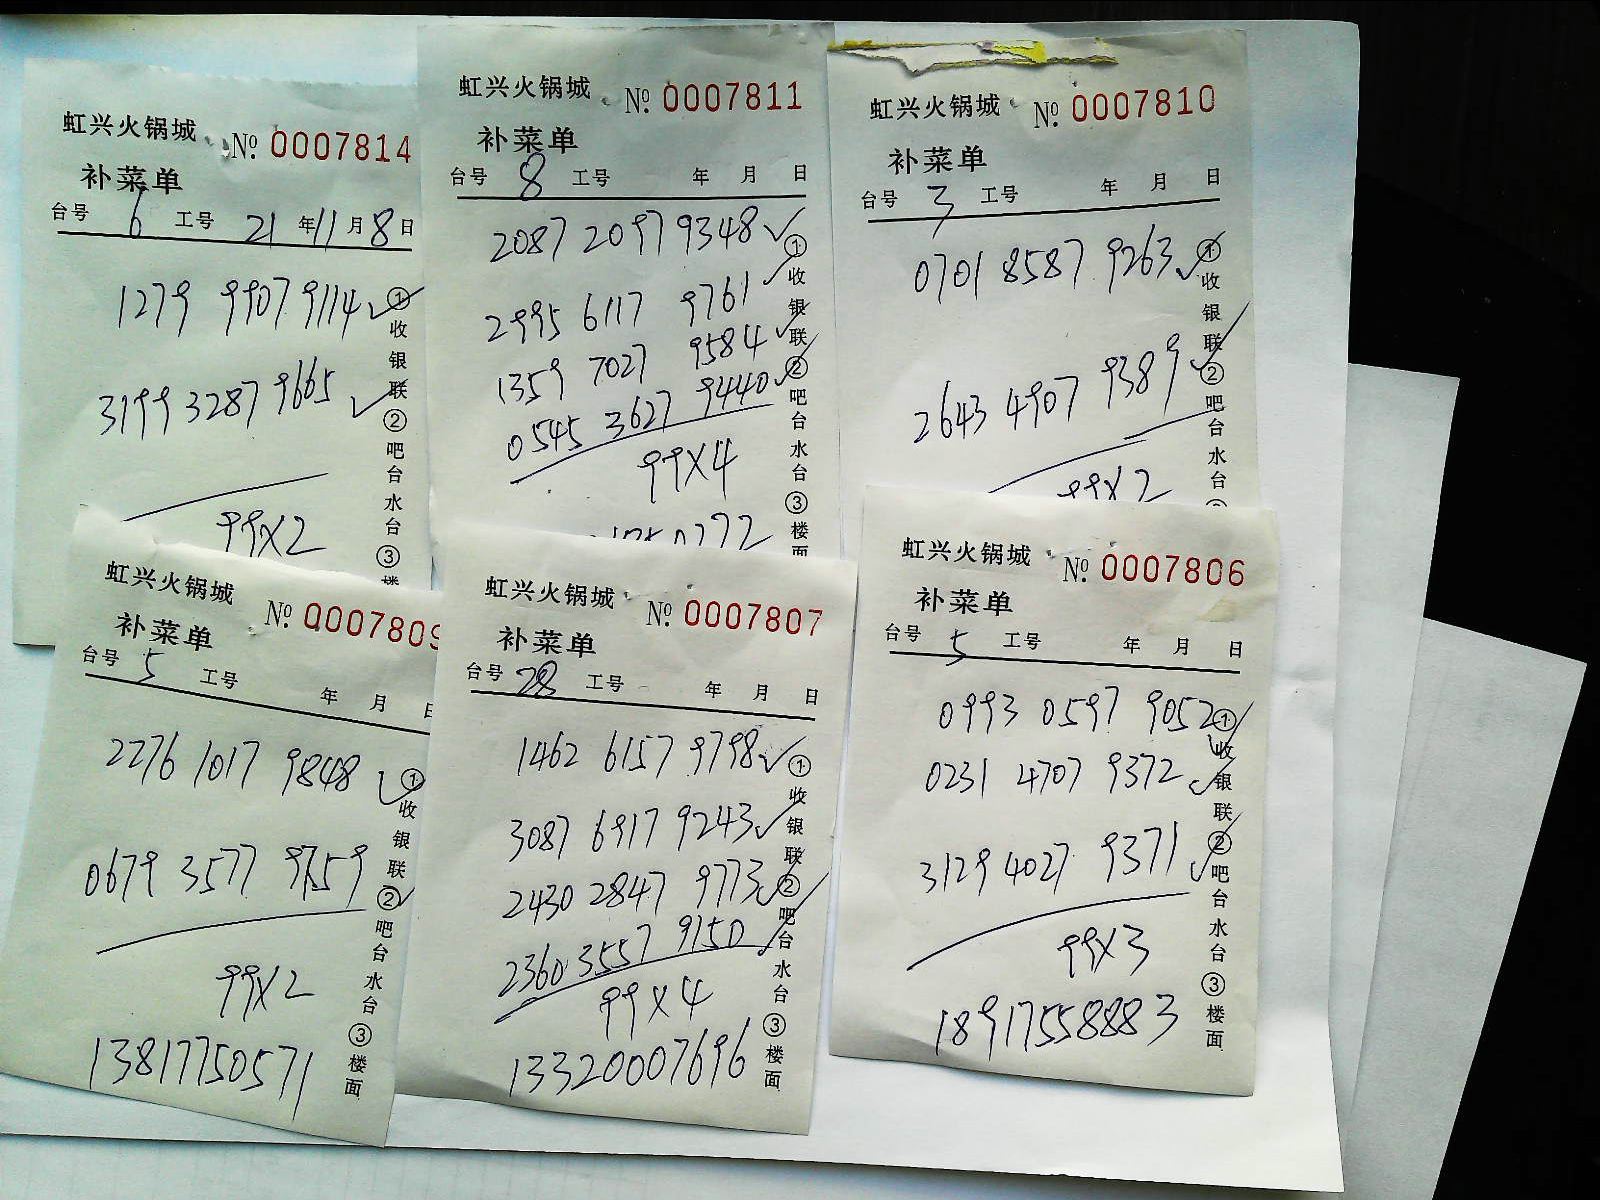 虹兴火锅城 № 0007814
补菜单
台号 6 工号 21 年 11 月 8 日
1279 9907 9114 ✓
3199 3287 9665 ✓
99X2
①收银联②吧台水台③楼
虹兴火锅城 № 0007811
补菜单
台号 8 工号 年 月 日
2087 2097 9348 ✓
2995 6117 9761 ✓
1359 7027 9584 ✓
0545 3627 9440 ✓
99X4
①收银联②吧台水台③楼面
虹兴火锅城 № 0007810
补菜单
台号 3 工号 年 月 日
0701 8587 9263 ✓
2643 4907 9389 ✓
99X2
①收银联②吧台水台
虹兴火锅城 № 0007809
补菜单
台号 5 工号 年 月 日
2276 1017 9848 ✓
0679 3577 9759 ✓
99X2
13817750571
①收银联②吧台水台③楼面
虹兴火锅城 № 0007807
补菜单
台号 28 工号 年 月 日
1462 6157 9798 ✓
3087 6917 9243 ✓
2430 2847 9773 ✓
2360 3557 9150 ✓
99X4
13320007696
①收银联②吧台水台③楼面
虹兴火锅城 № 0007806
补菜单
台号 5 工号 年 月 日
0993 0597 9052 ✓
0231 4707 9372 ✓
3129 4027 9371 ✓
99X3
18917558883
①收银联②吧台水台③楼面